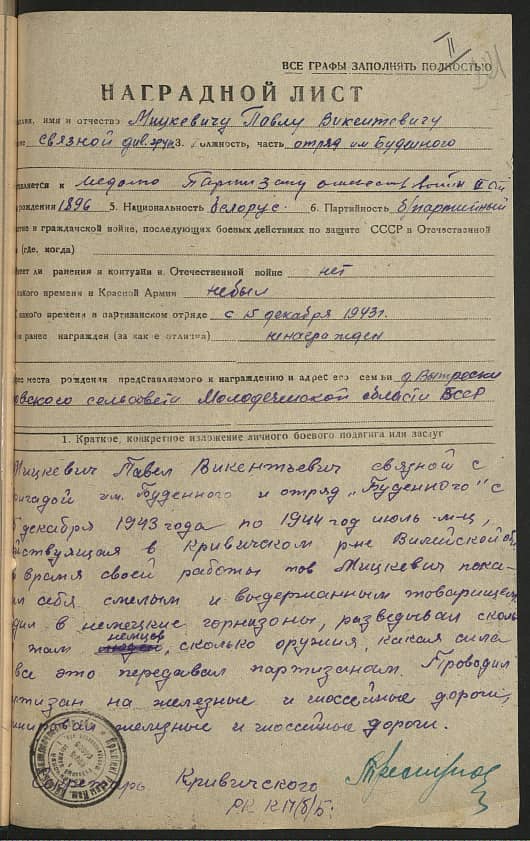 II
ВСЕ ГРАФЫ ЗАПОЛНЯТЬ ПОЛНОСТЬЮ
НАГРАДНОЙ ЛИСТ
имя и отчество Мицкевичу Павлу Викентевичу
связной 3. Должность, часть отряд им Буденного
к медалю Партизану отечеств войны II ой
рождения 1896 5. Национальность белорус. 6. Партийность б/партийный
в гражданской войне, последующих боевых действиях по защите СССР в Отечественной
(где, когда)
ли ранения и контузии в Отечественной войне нет
какого времени в Красной Армии небыл
какого времени в партизанском отряде с 15 декабря 1943г.
ранее награжден (за какие отличия) ненагражден
места рождения представляемого к награждению и адрес его семьи д.
сельсовета Молодечмской области БССР
1. Краткое, конкретное изложение личного боевого подвига или заслуг
Мицкевич Павел Викентьевич связной с
бригадой им. Буденного и отряд „Буденного" с
декабря 1943 года по 1944 год июль м-ц,
действующая в Кривичском р-не Вилейской об.
время своей работы тов Мицкевич пока-
л себя смелым и выдержанным товарищем
дил в немецкие горнизоны, разведывал сколь
там немцов, сколько оружия, какая сила
все это передавал партизанам. Проводил
партизан на железные и шоссейные дороги,
минировал железные и шоссейные дороги.
Секретарь Кривичского
РК КП(б)Б.